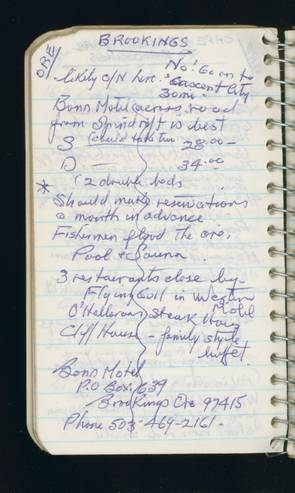 ORE
BROOKINGS
No! Go on to
likely o/n here. Crescent City
30mi.
Bonn Motel (across road
from Spindrift is best
S (could take two 28.00 –
D – 34.00
(2 double beds
* Should make reservations
a month in advance
Fishermen flood the area.
Pool & Sauna.
3 restaurants close by –
Flying Gull in Western
Motel
O'Halloran's Steak House
Cliff House – family style
buffet.
Bonn Motel
P.O Box 639
Brookings Ore 97415
Phone 503-469-2161 –